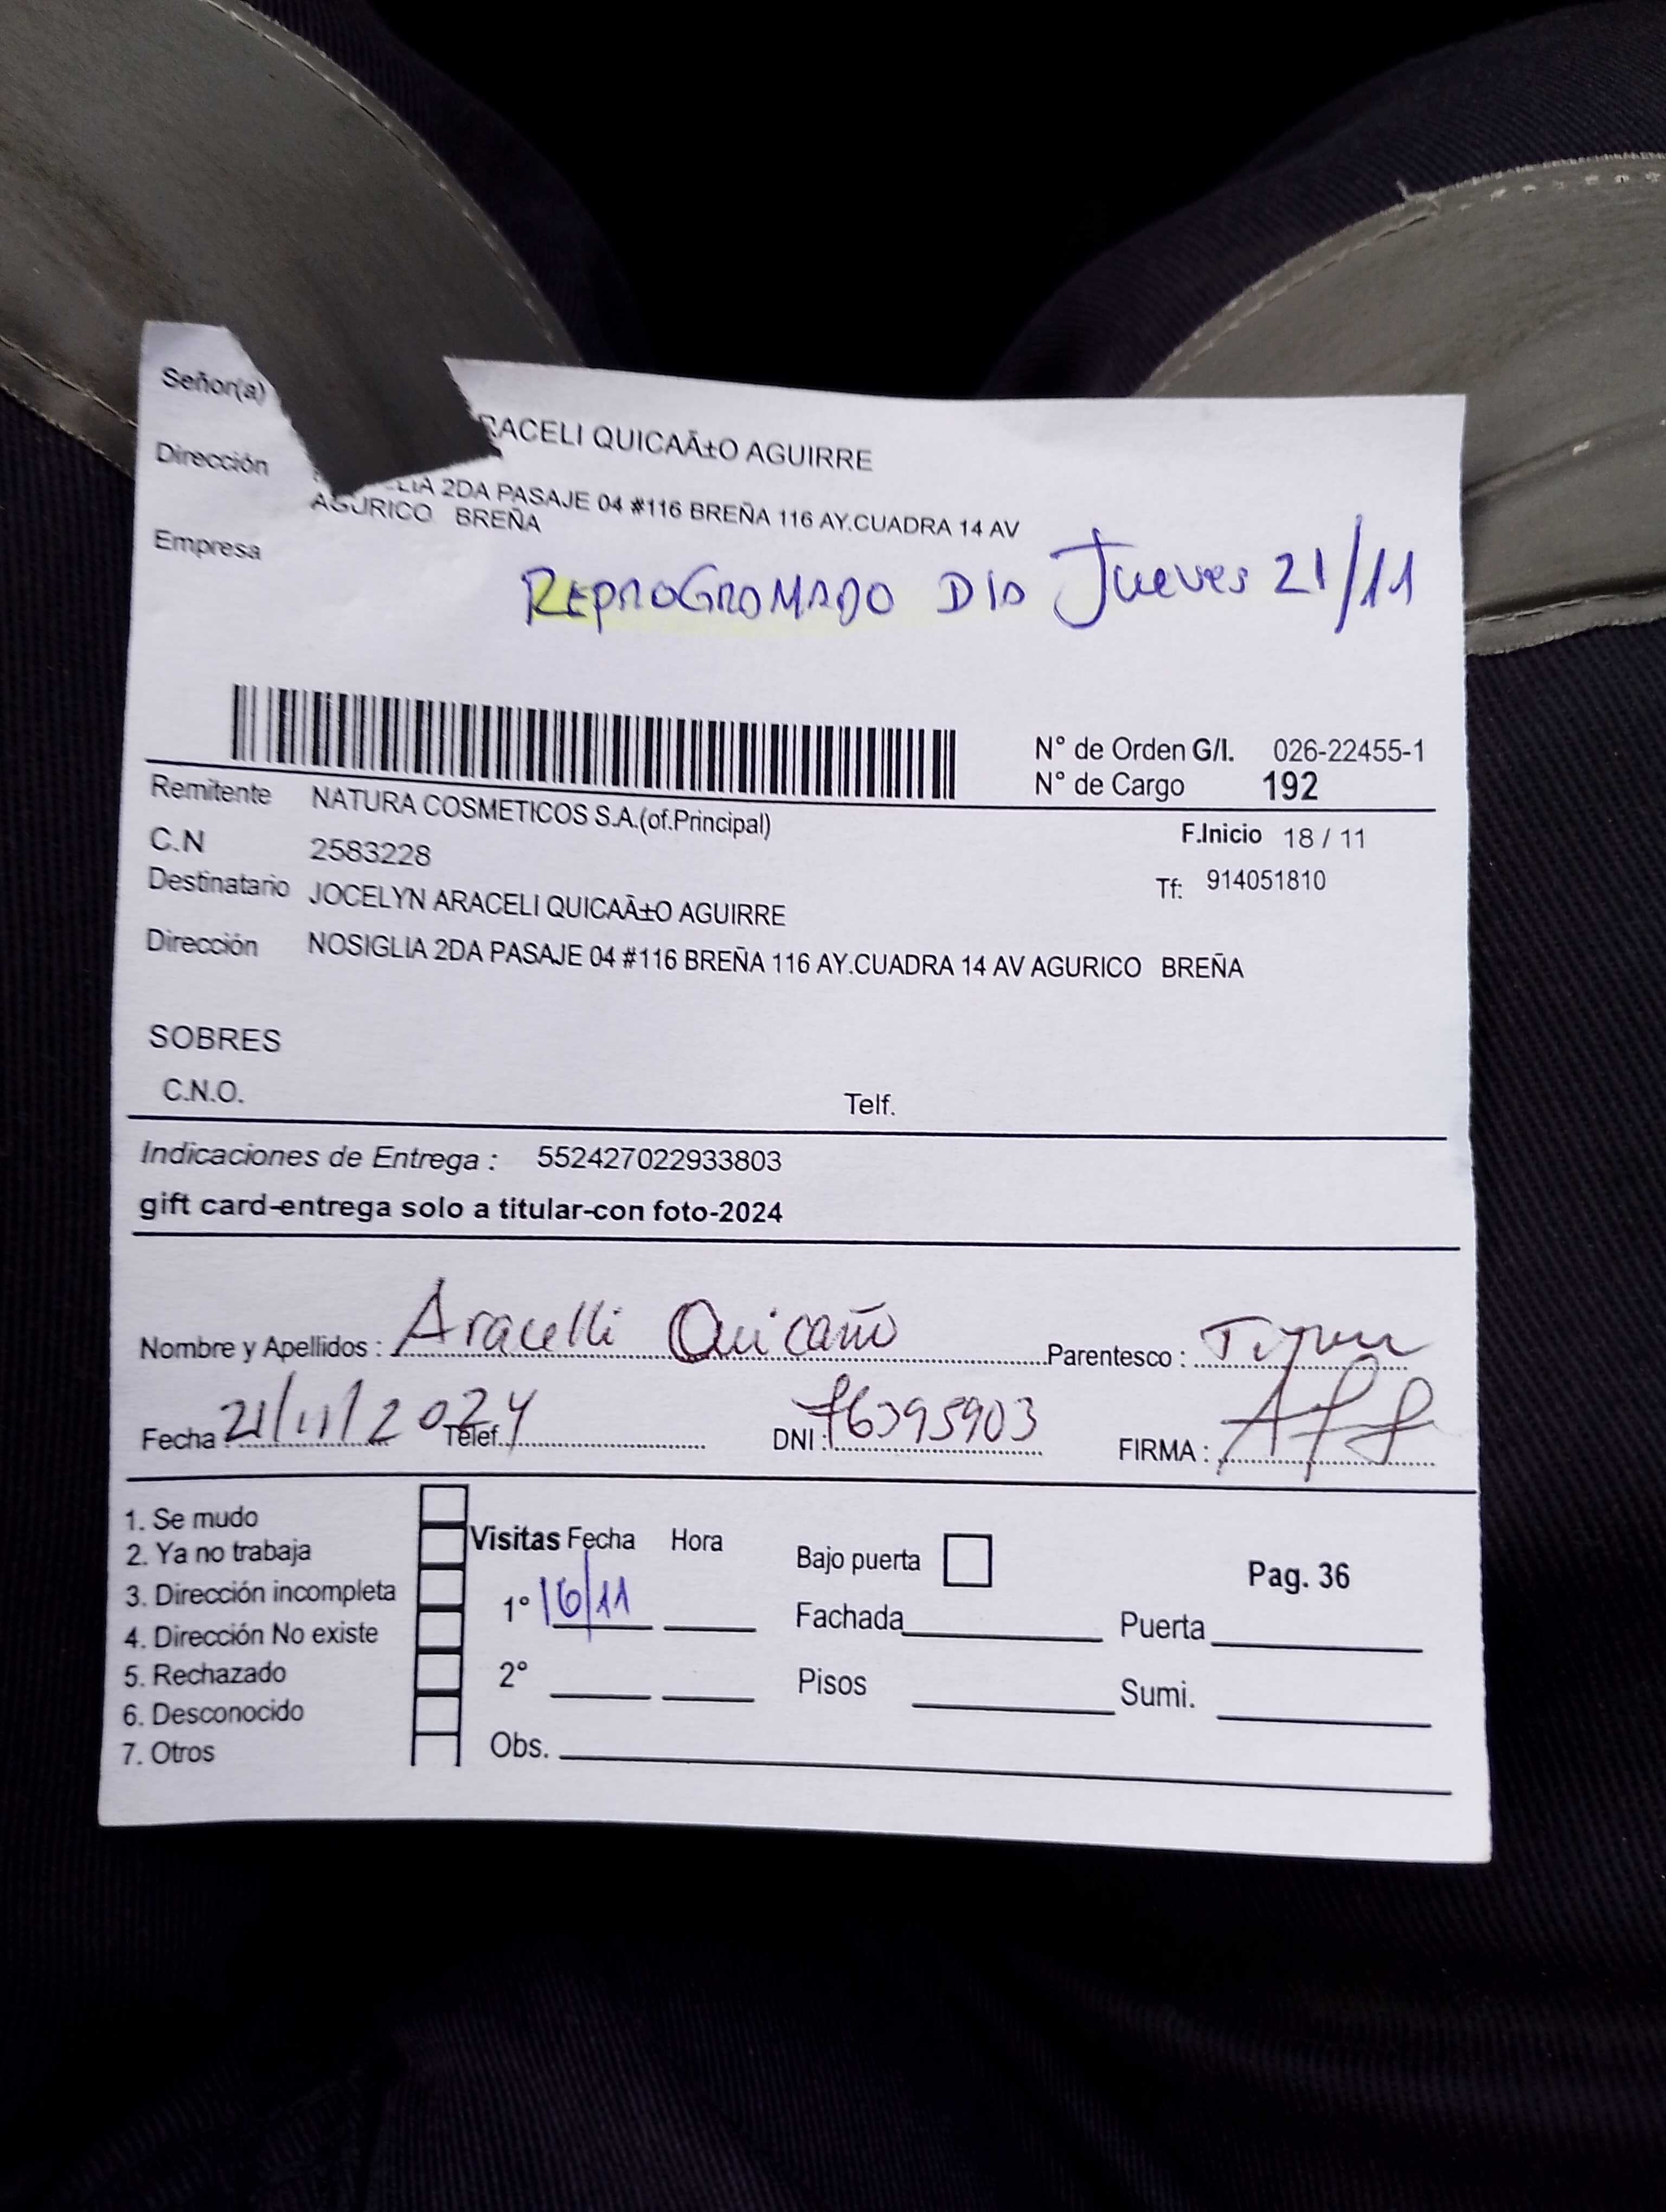 Señor(a) RACELI QUICAÃ±O AGUIRRE
Dirección LIA 2DA PASAJE 04 #116 BREÑA 116 AY.CUADRA 14 AV
AGURICO BREÑA
Empresa
REPROGROMADO DIA Jueves 21/11
N° de Orden G/I. 026-22455-1
N° de Cargo 192
Remitente NATURA COSMETICOS S.A.(of.Principal)
F.Inicio 18 / 11
C.N 2583228
Tf: 914051810
Destinatario JOCELYN ARACELI QUICAÃ±O AGUIRRE
Dirección NOSIGLIA 2DA PASAJE 04 #116 BREÑA 116 AY.CUADRA 14 AV AGURICO BREÑA
SOBRES
C.N.O. Telf.
Indicaciones de Entrega : 552427022933803
gift card-entrega solo a titular-con foto-2024
Nombre y Apellidos : Aracelli Quicaño Parentesco :
Fecha : 21/11/2024 Telef. DNI : 76395903 FIRMA :
1. Se mudo
2. Ya no trabaja
3. Dirección incompleta
4. Dirección No existe
5. Rechazado
6. Desconocido
7. Otros
Visitas Fecha Hora
1° 16/11
2°
Obs.
Bajo puerta
Pag. 36
Fachada Puerta
Pisos Sumi.